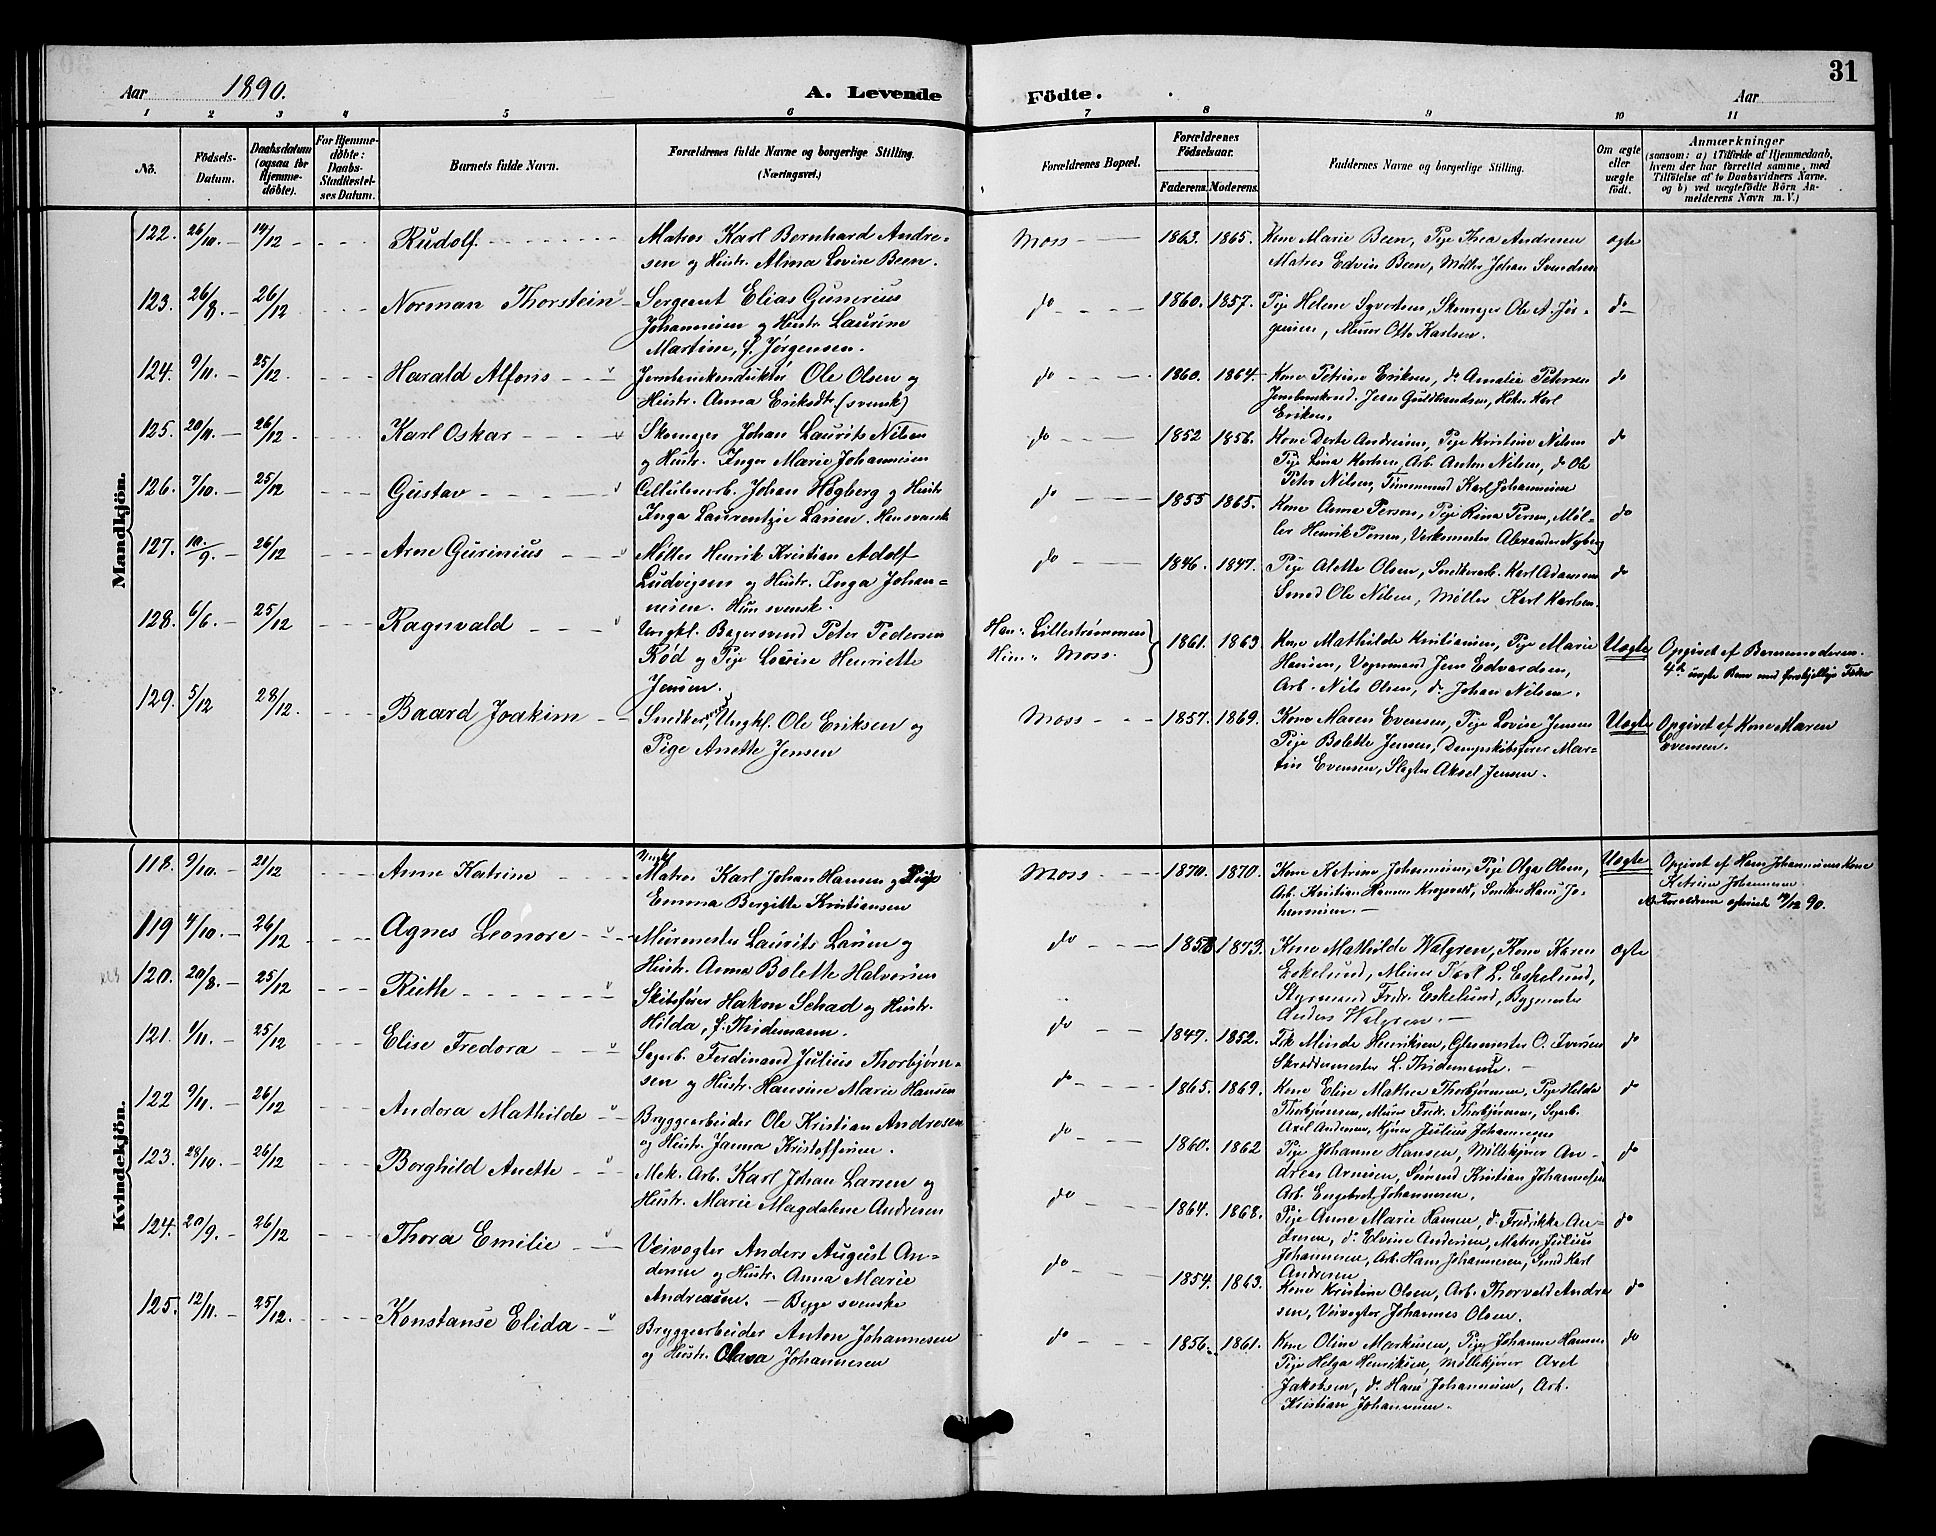 31
Aar 1890. A. Levende Födte. Aar
1 2 3 4 5 6 7 8 9 10 11
No.
Födsels-Datum.
Daabsdatum (ogsaa for Hjemme-döbte).
For Hjemme-döbte: Daabs-Stadfæstel-ses Datum.
Barnets fulde Navn.
Forældrenes fulde Navne og borgerlige Stilling. (Næringsvei.)
Forældrenes Bopæl.
Forældrenes Födselsaar.
Faderens. Moderens.
Faddernes Navne og borgerlige Stilling.
Om ægte eller uægte födt.
Anmærkninger
(saasom: a) i Tilfælde af Hjemmedaab, hvem der har forrettet samme, med Tilföielse af to Daabsvidners Navne, og b) ved uægtefödte Börn An-melderens Navn m. V.)
Mandkjön.
122. 26/10. 14/12 Rudolf. Matros Karl Bernhard Andre-
sen og Hustr. Alma Lovise Been.
Moss 1863. 1865. Kone Marie Been, Pige Thea Andresen
Matros Edvin Been, Møller Johan Svendsen
ægte
123. 26/8. 26/12 Norman Thorstein Sergeant Elias Gunerius
Johannesen og Hustr. Laurine
Martine, f. Jørgensen.
do 1860. 1857. Pige Helene Syvertsen, Skomager Ole A. Jør-
gensen, Murer Otto Karlsen.
do
124. 9/11. 25/12. Harald Alfons Jernbanekonduktør Ole Olsen og
Hustr. Anna Eriksdtr. (svensk)
do 1860. 1864. Kone Petrine Eriksen, do Amalie Petersen
Jens Guldbrandsen, Karl
Eriksen.
do
125. 20/11. 26/12. Karl Oskar Skomager Johan Laurits Nilsen
og Hustr. Inger Marie Johannesen
do 1852 1856. Kone Dorte Andresen, Pige Kristine Nilsen
Pige Lina Karlsen, Arb. Anton Nilsen, do Ole
Peter Nilsen, Tømmermd Karl Johannesen
do
126. 7/10. 25/12 Gustav Cellulosearb. Johan Høgberg og Hustr.
Inga Laurentzie Larsen. Han svensk
do 1855 1865. Kone Anna Person, Pige Rina Persen, Møl-
ler Henrik Persen, Verksmester Alexander Nyberg
do
127. 10./9. 26/12 Arne Gurinius Møller Henrik Kristian Adolf
Ludvigsen og Hustr. Inga Johan-
nesen. Hun svensk.
do 1846. 1847. Pige Alette Olsen, Snedkerarb. Karl Adamsen
Smed Ole Nilsen, Møller Karl Karlsen.
do
128. 6/6. 25/12 Ragnvald Ungkl. Bagersvend Peter Pedersen
Rød og Pige Lovise Henriette
Jensen.
Han: Lillestrømmen
Hun: Moss.
1861. 1863 Kone Mathilde Kristiansen, Pige Marie
Hansen, Vognmand Jens Edvardsen,
Arb. Nils Olsen, do Johan Nilsen.
Uægte Opgivet af Barnemoderen.
4de uægte Barn med forskjellige Fædre
129. 5/12 28/12. Baard Joakim Snedkersvend, Ungkl. Ole Eriksen og
Pige Anette Jensen
Moss 1857. 1869. Kone Maren Evensen, Pige Lovise Jensen
Pige Bolette Jensen, Dampskibsfører Mar-
tin Evensen, Slagter Aksel Jensen.
Uægte Opgivet af Kone Maren
Evensen.
Kvindekjön.
118. 9/10. 21/12 Anne Katrine Ungkl
Matros Karl Johan Hansen og Pige
Emma Bergitte Kristiansen
Moss 1870. 1870. Kone Katrine Johannesen, Pige Olga Olsen,
Arb. Kristian Hansen Krogsvold, Snedker Hans Jo-
hannesen.
Uægte Opgivet af Hans Johannesens Kone
Katrine Johannesen.
Forældrene ægteviede 14/12 90.
119 4/10. 26/12 Agnes Leonore Murmester Laurits Larsen og
Hustr. Anna Bolette Halvorsen
do 1858 1873. Kone Mathilde Walgren, Kone Karen
Eskelund, Murer Karl L. Eskelund,
Styrmand Fredr. Eskelund, Bygmester
Anders Walgren.
ægte
120. 20/8. 25/12 Ruth Skibsfører Hakon Schad og Hustr.
Hilda, f. Thidemann.
do 1847. 1852. Frk Minda Henriksen, Glasmester O. Iversen
Skræddermester L. Thidemann.
do
121. 1/11. 25/12 Elise Fredora Sagarb. Ferdinand Julius Thorbjørn-
sen og Hustr. Hansine Marie Hansen
do 1865. 1869. Kone Elise Mathea Thorbjørnsen, Pige Hilda
Thorbjørnsen, Murer Fredr. Thorbjørnsen, Sagarb.
Axel Andersen, Julius Johannesen
do
122 9/11. 26/12 Andora Mathilde Bryggearbeider Ole Kristian Andresen
og Hustr. Janna Kristoffersen.
do 1860. 1862 Pige Johanne Hansen, Møllekjører An-
dreas Arnesen, Sømand Kristian Johannesen
Arb. Engebret Johannesen.
do
123. 28/10. 26/12 Borghild Anette Mek. Arb. Karl Johan Larsen og
Hustr. Marie Magdalene Andresen
do 1864. 1868. Pige Anne Marie Hansen, do Fredrikke An-
dresen, do Edvine Andersen, Matros Julius
Johannesen, Arb. Hans Johannesen, Smed Karl
Andresen
do
124. 20/9. 26/12 Thora Emilie Veivogter Anders August An-
dersen og Hustr. Anna Marie
Andreasen. — Begge svenske
do 1854. 1863. Kone Kristine Olsen, Arb. Thorvald Andre
sen, Veivogter Johannes Olsen.
do
125. 12/11. 25/12. Konstanse Elida Bryggearbeider Anton Johannesen
og Hustr. Olava Johannesen
do 1856. 1861. Kone Oline Markusen, Pige Johanne Hansen
Pige Helga Henriksen, Møllekjører Axel
Jakobsen, do Hans Johannesen, Arb.
Kristian Johannesen.
do